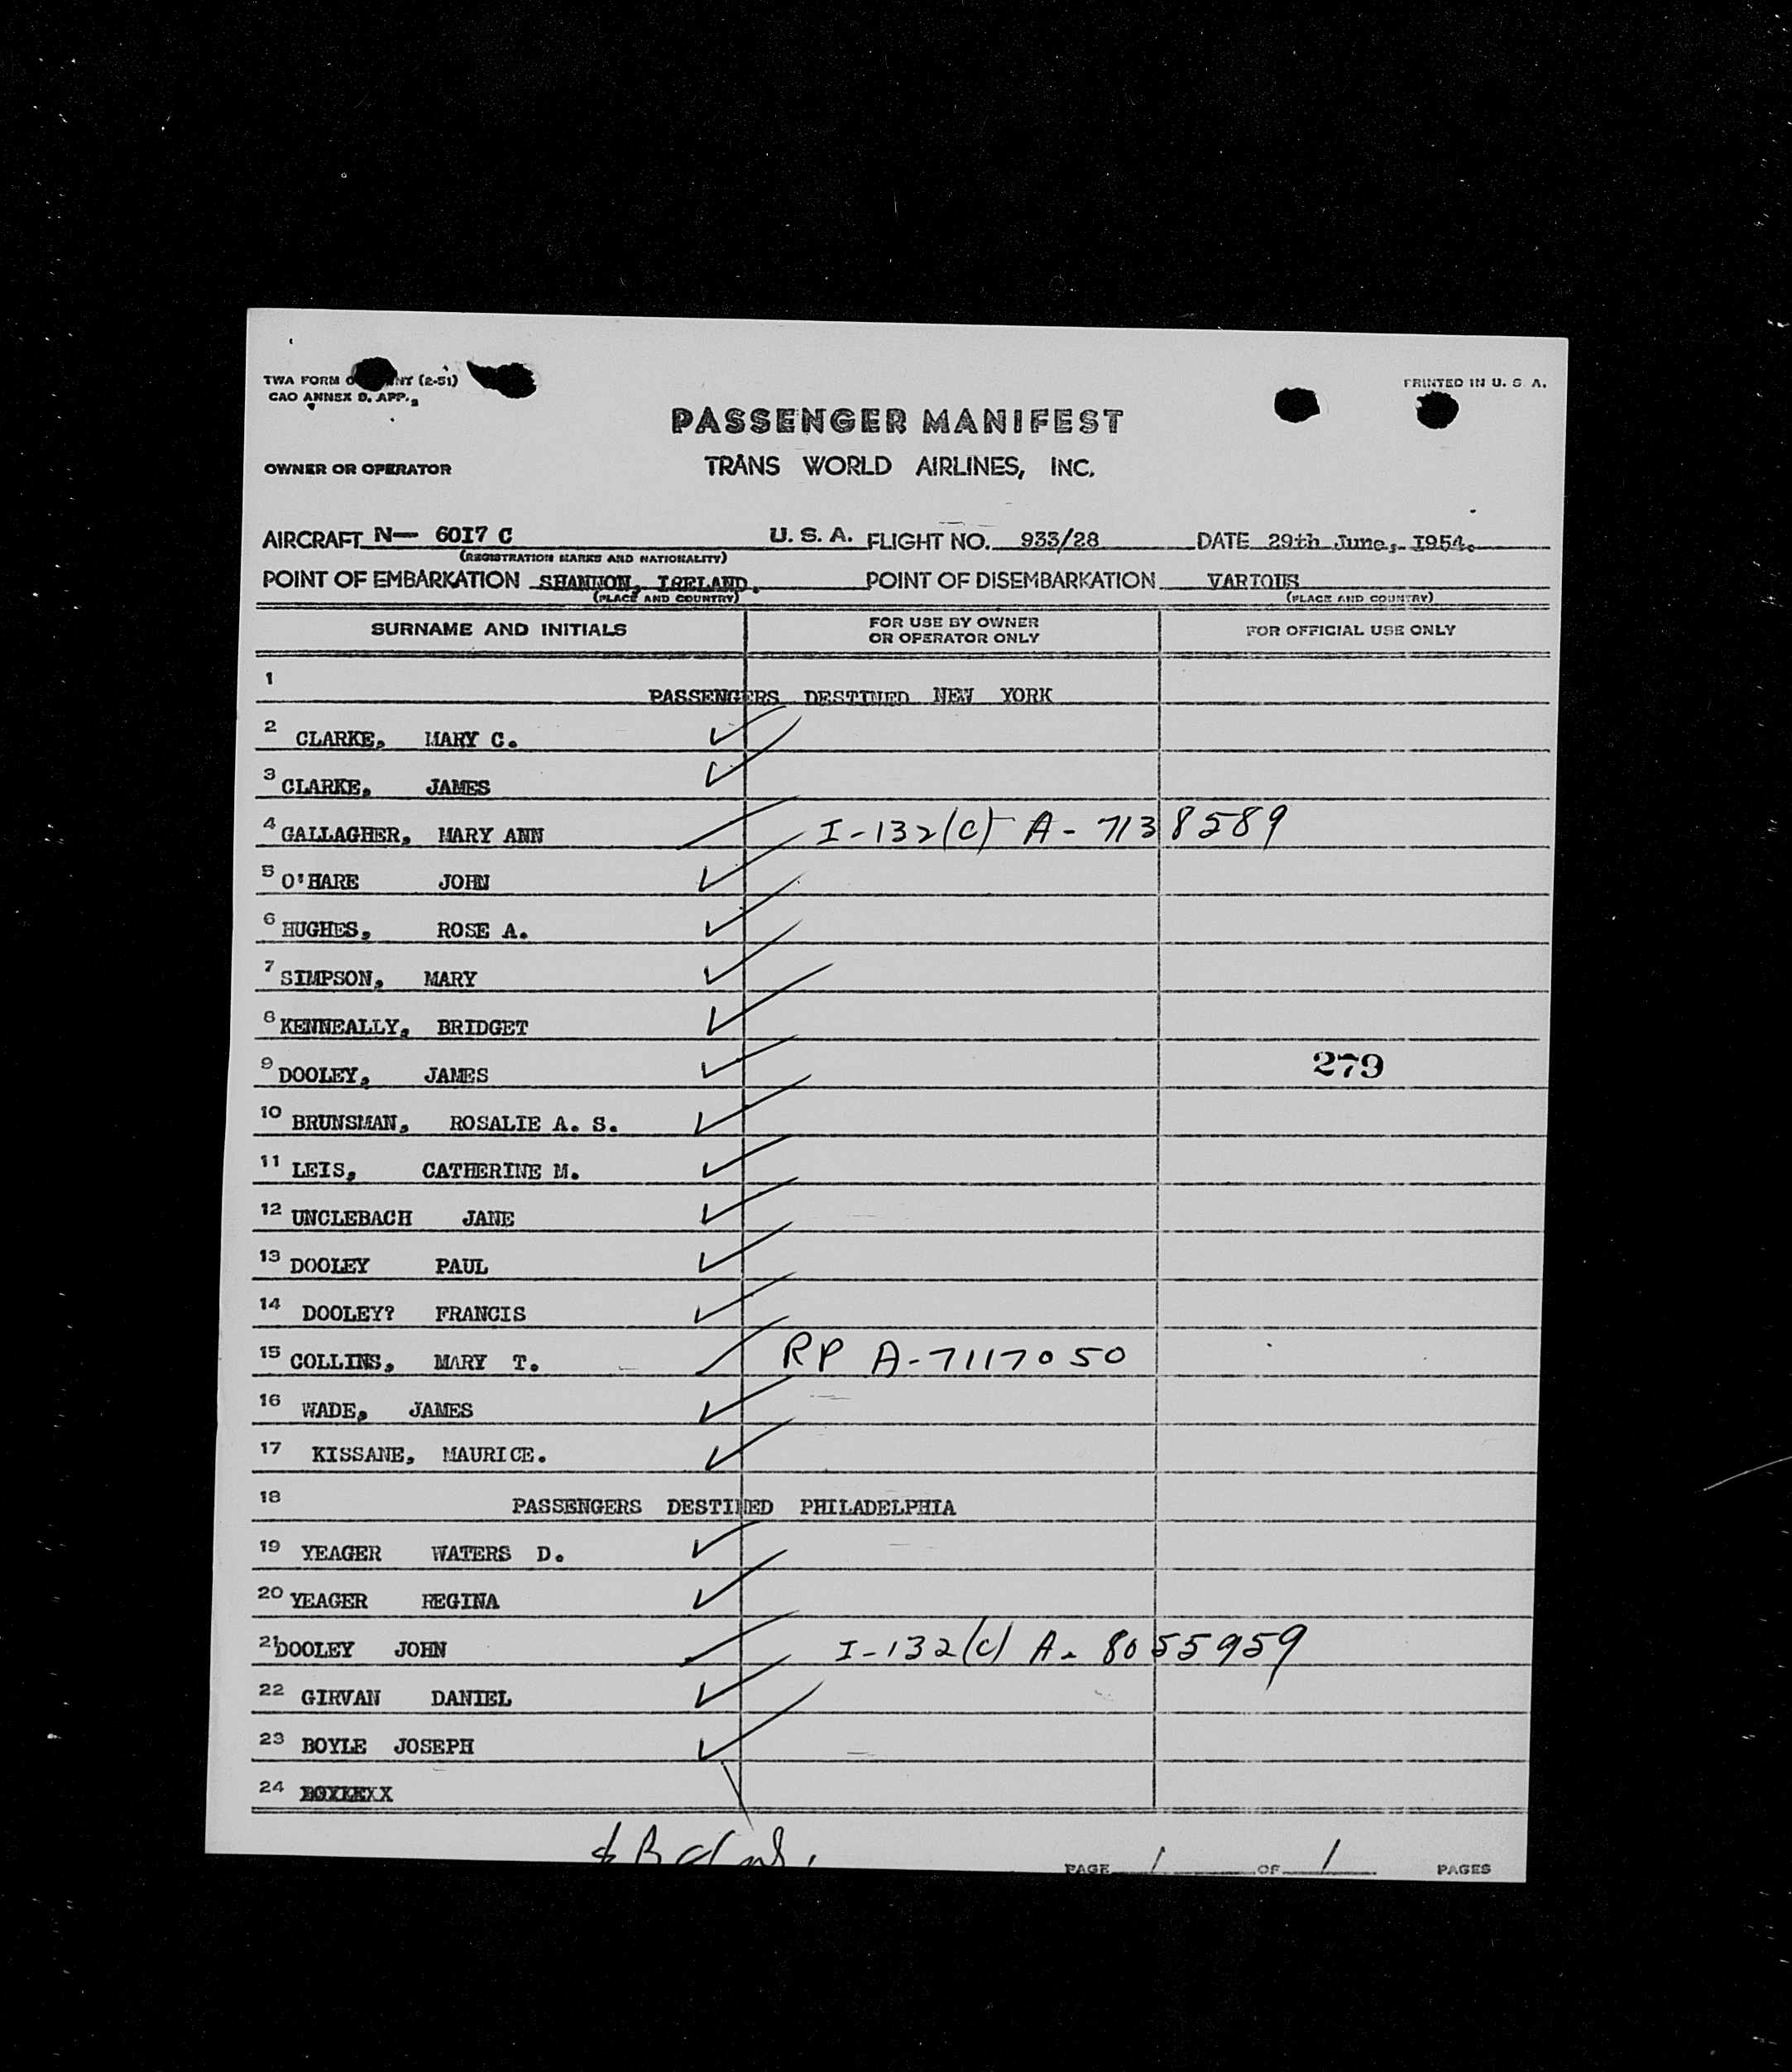 TWA FORM (2-51)
PRINTED IN U. S. A.
CAO ANNEX 9. APP.
PASSENGER MANIFEST
OWNER OR OPERATOR
TRANS WORLD AIRLINES, INC.
AIRCRAFT N— 60I7 C U. S. A. FLIGHT NO. 933/28 DATE 29th June, I954.
(REGISTRATION MARKS AND NATIONALITY)
POINT OF EMBARKATION SHANNON, IRELAND. POINT OF DISEMBARKATION VARIOUS
(PLACE AND COUNTRY) (PLACE AND COUNTRY)
SURNAME AND INITIALS FOR USE BY OWNER OR OPERATOR ONLY FOR OFFICIAL USE ONLY
1 PASSENGERS DESTINED NEW YORK
2 CLARKE, MARY C.
3 CLARKE, JAMES
4 GALLAGHER, MARY ANN I-132(C) A-7138589
5 O'HARE JOHN
6 HUGHES, ROSE A.
7 SIMPSON, MARY
8 KENNEALLY, BRIDGET
9 DOOLEY, JAMES 279
10 BRUNSMAN, ROSALIE A. S.
11 LEIS, CATHERINE M.
12 UNCLEBACH JANE
13 DOOLEY PAUL
14 DOOLEY? FRANCIS
15 COLLINS, MARY T. RP A-7117050
16 WADE, JAMES
17 KISSANE, MAURICE.
18 PASSENGERS DESTINED PHILADELPHIA
19 YEAGER WATERS D.
20 YEAGER REGINA
21 DOOLEY JOHN I-132(C) A-8055959
22 GIRVAN DANIEL
23 BOYLE JOSEPH
24
PAGE 1 OF 1 PAGES